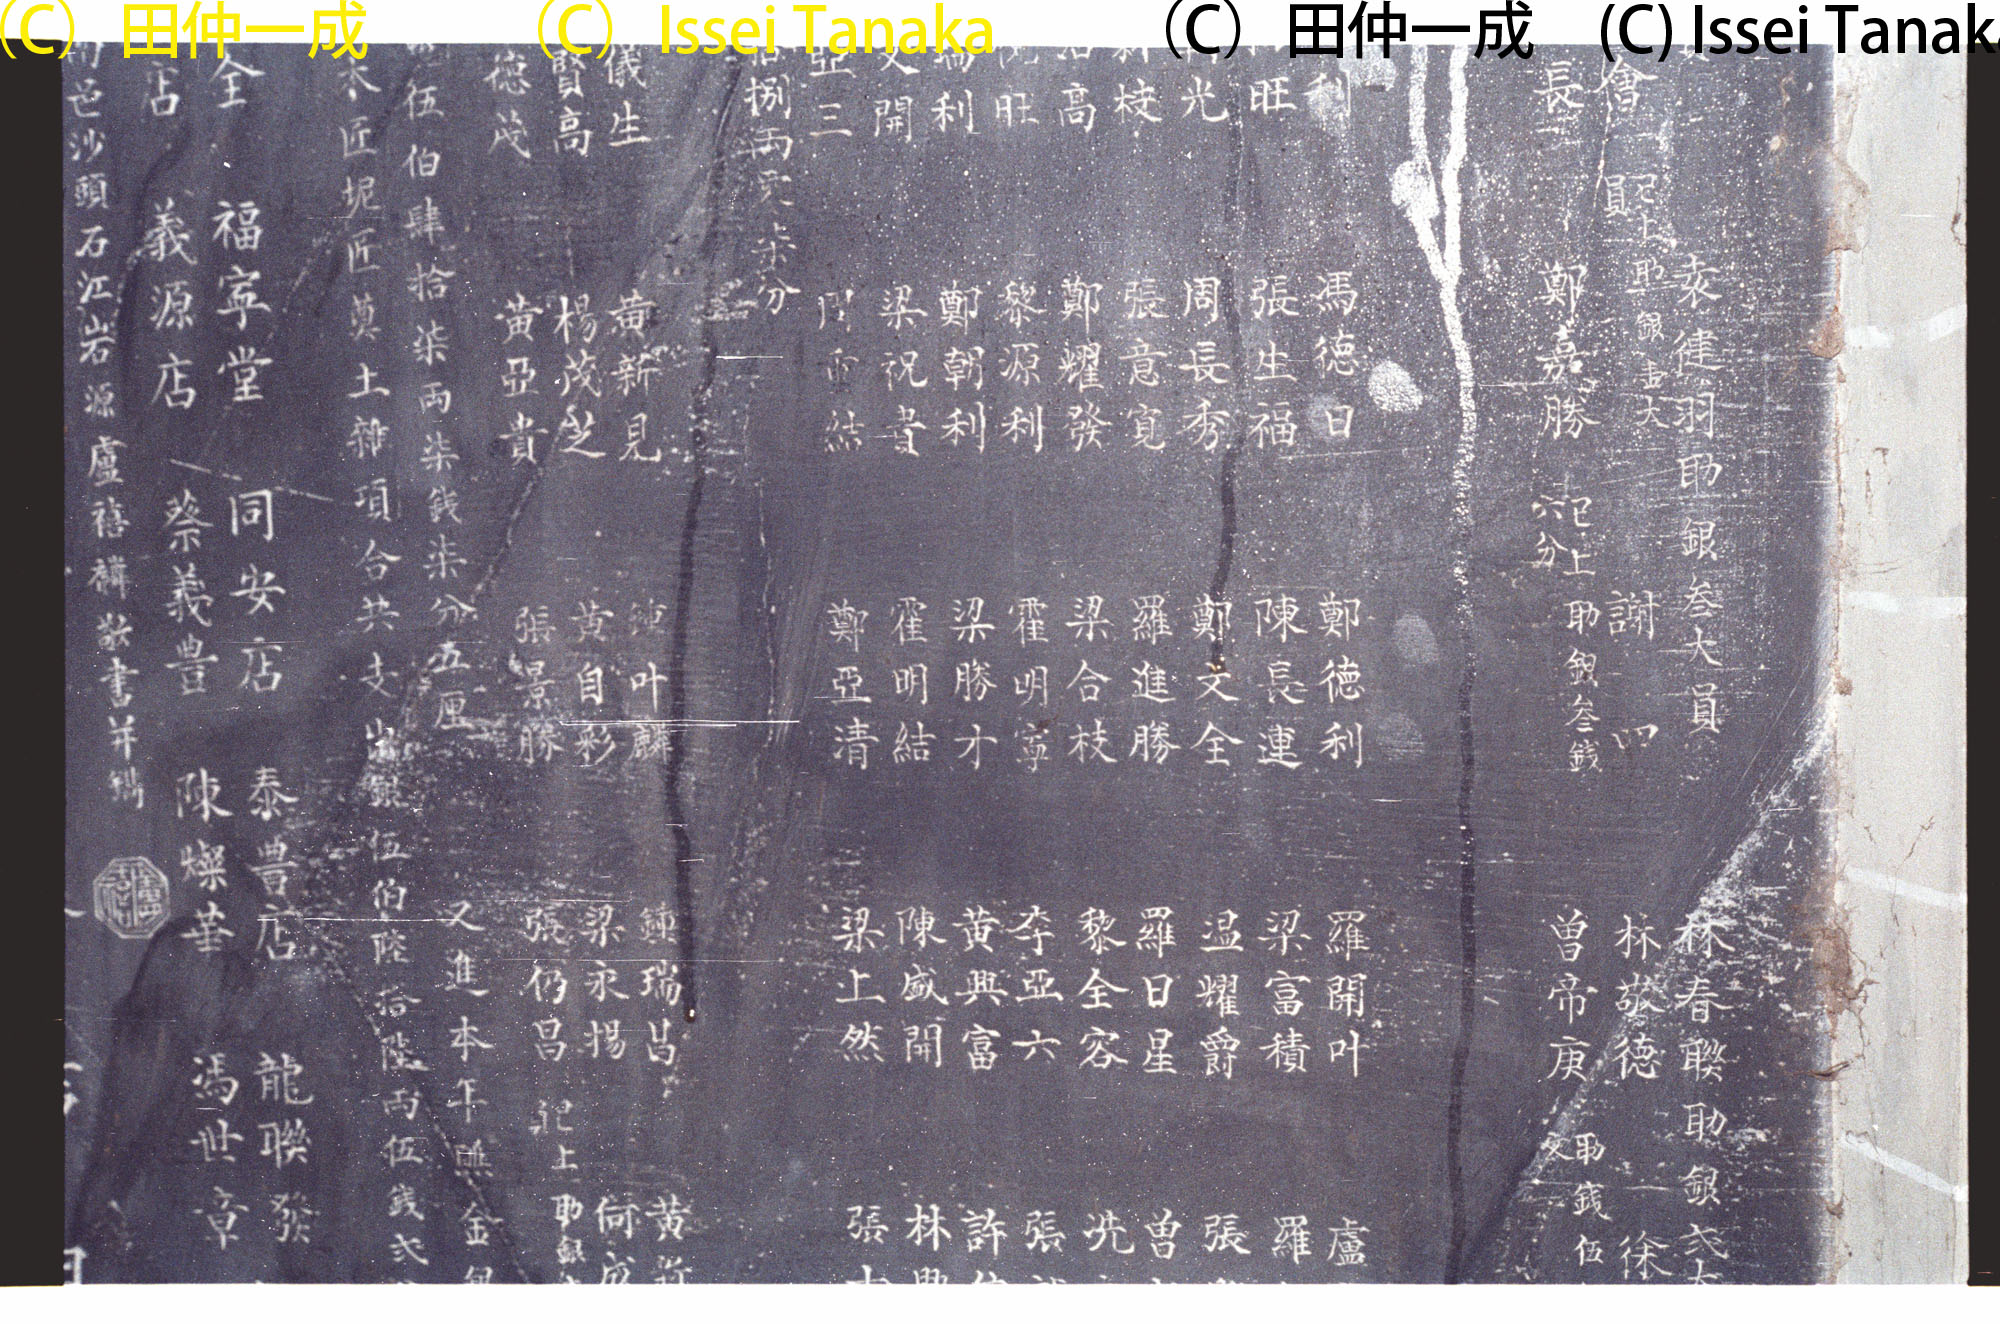 (C) 田仲一成 (C) Issei Tanaka (C) 田仲一成 (C) Issei Tanaka
健羽助銀叁大員 林春聯助銀弍大
會員 已上助銀壹大 謝四 林敬德 徐
長 鄭嘉勝 已上助銀叁錢六分 曾帝庚 助錢伍
利 馮德日 鄭德利 羅開叶 盧
旺 張生福 陳長連 梁富積 羅
光 周長秀 鄭文全 温耀爵 張
枝 張意寬 羅進勝 羅日星 曾
高 鄭耀發 梁合枝 黎全容 冼
旺 黎源利 霍明寧 李亞六 張
利 鄭朝利 梁勝才 黃興富 許
開 梁祝書 霍明結 陳盛開 林
亞三 結 鄭亞清 梁上然 張
捌兩 柒分
儀生 黃新見 鍾叶麟 鍾瑞昌 黃
賢高 楊茂芝 黃自彩 梁永揚 何
德茂 黃亞貴 張景勝 張仍昌 已上助銀
伍伯肆拾柒兩柒錢柒分五厘 又進本年 金
木匠坭匠奠土雜項合共支出銀伍伯陸拾陸兩伍錢弍
全 福寧堂 同安店 泰豊店 龍聯發
店 義源店 蔡義豊 陳燦華 馮世章
邑沙頭石江岩源盧禧麟敬書并鐫